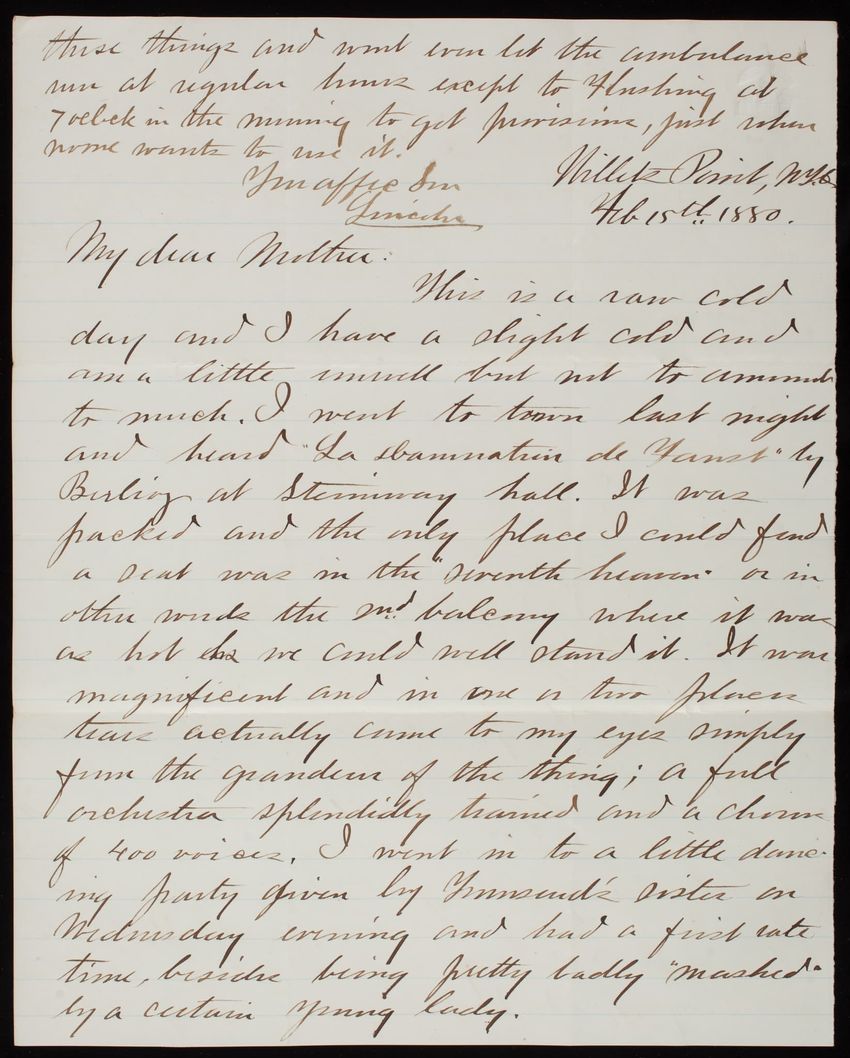 these things and wont even let the ambulance
run at regular hours except to Flushing at
7 oclock in the morning to get provisions, just when
no one wants to use it.
Your affec Son
Lincoln
Willets Point, N.Y.H.
Feb 15th 1880.
My dear Mother:
This is a raw cold
day and I have a slight cold and
am a little unwell but not to amount
to much. I went to town last night
and heard "La Damnation de Faust" by
Berlioz at Steinway hall. It was
packed and the only place I could find
a seat was in the "seventh heaven" or in
other words the 2nd balcony where it was
as hot as we could well stand it. It was
magnificent and in one or two places
tears actually came to my eyes simply
from the grandeur of the thing; a full
orchestra splendidly trained and a chorus
of 400 voices. I went in to a little danc-
ing party given by Townsend's sister on
Wednesday evening and had a first rate
time, beside being pretty badly "mashed"
by a certain young lady.